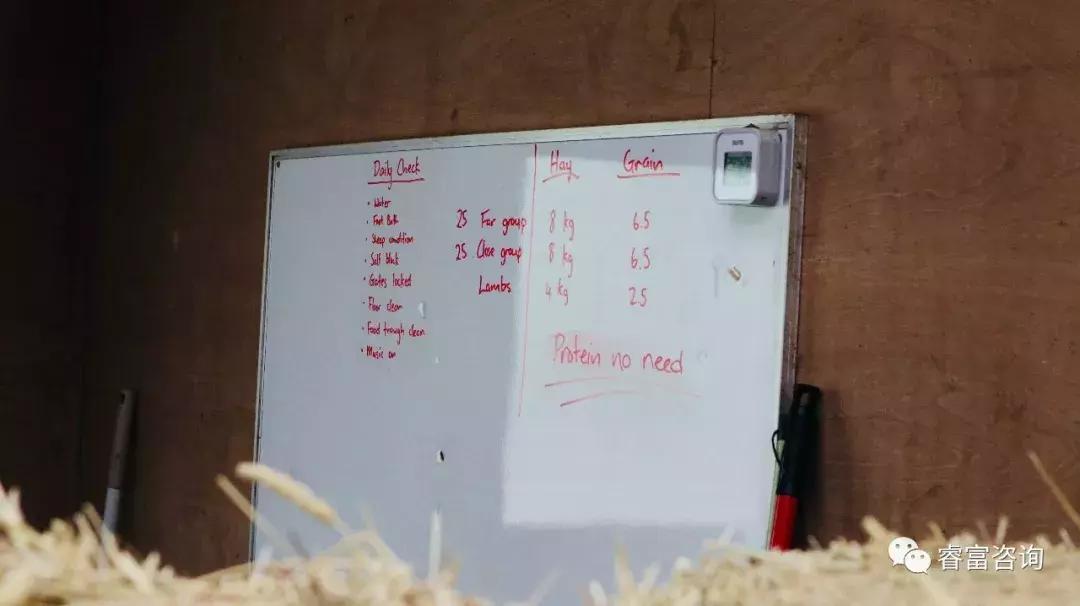 Daily Check
• Water
• Foot Bath
• Sheep condition
• Salt block
• Gates locked
• Floor clean
• Food trough clean
• Music on
Hay Grain
25 Far group 8 kg 6.5
25 Close group 8 kg 6.5
Lambs 4 kg 2.5
Protein no need
睿富咨询